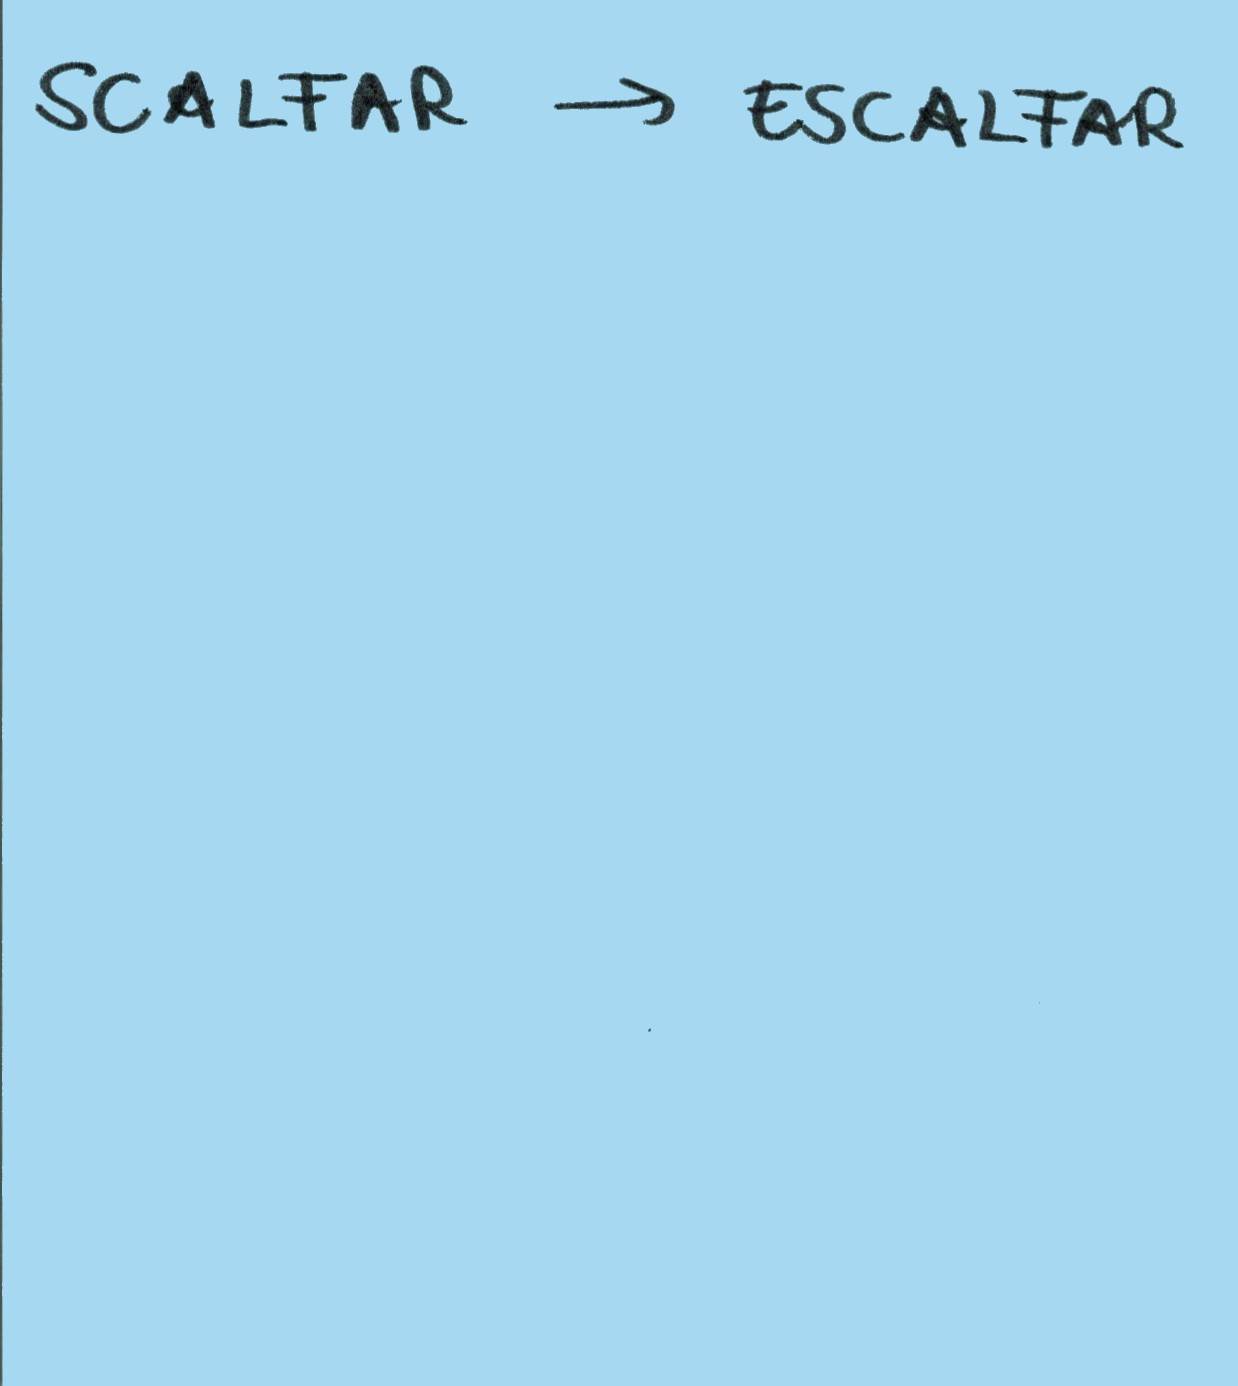 SCALFAR → ESCALFAR